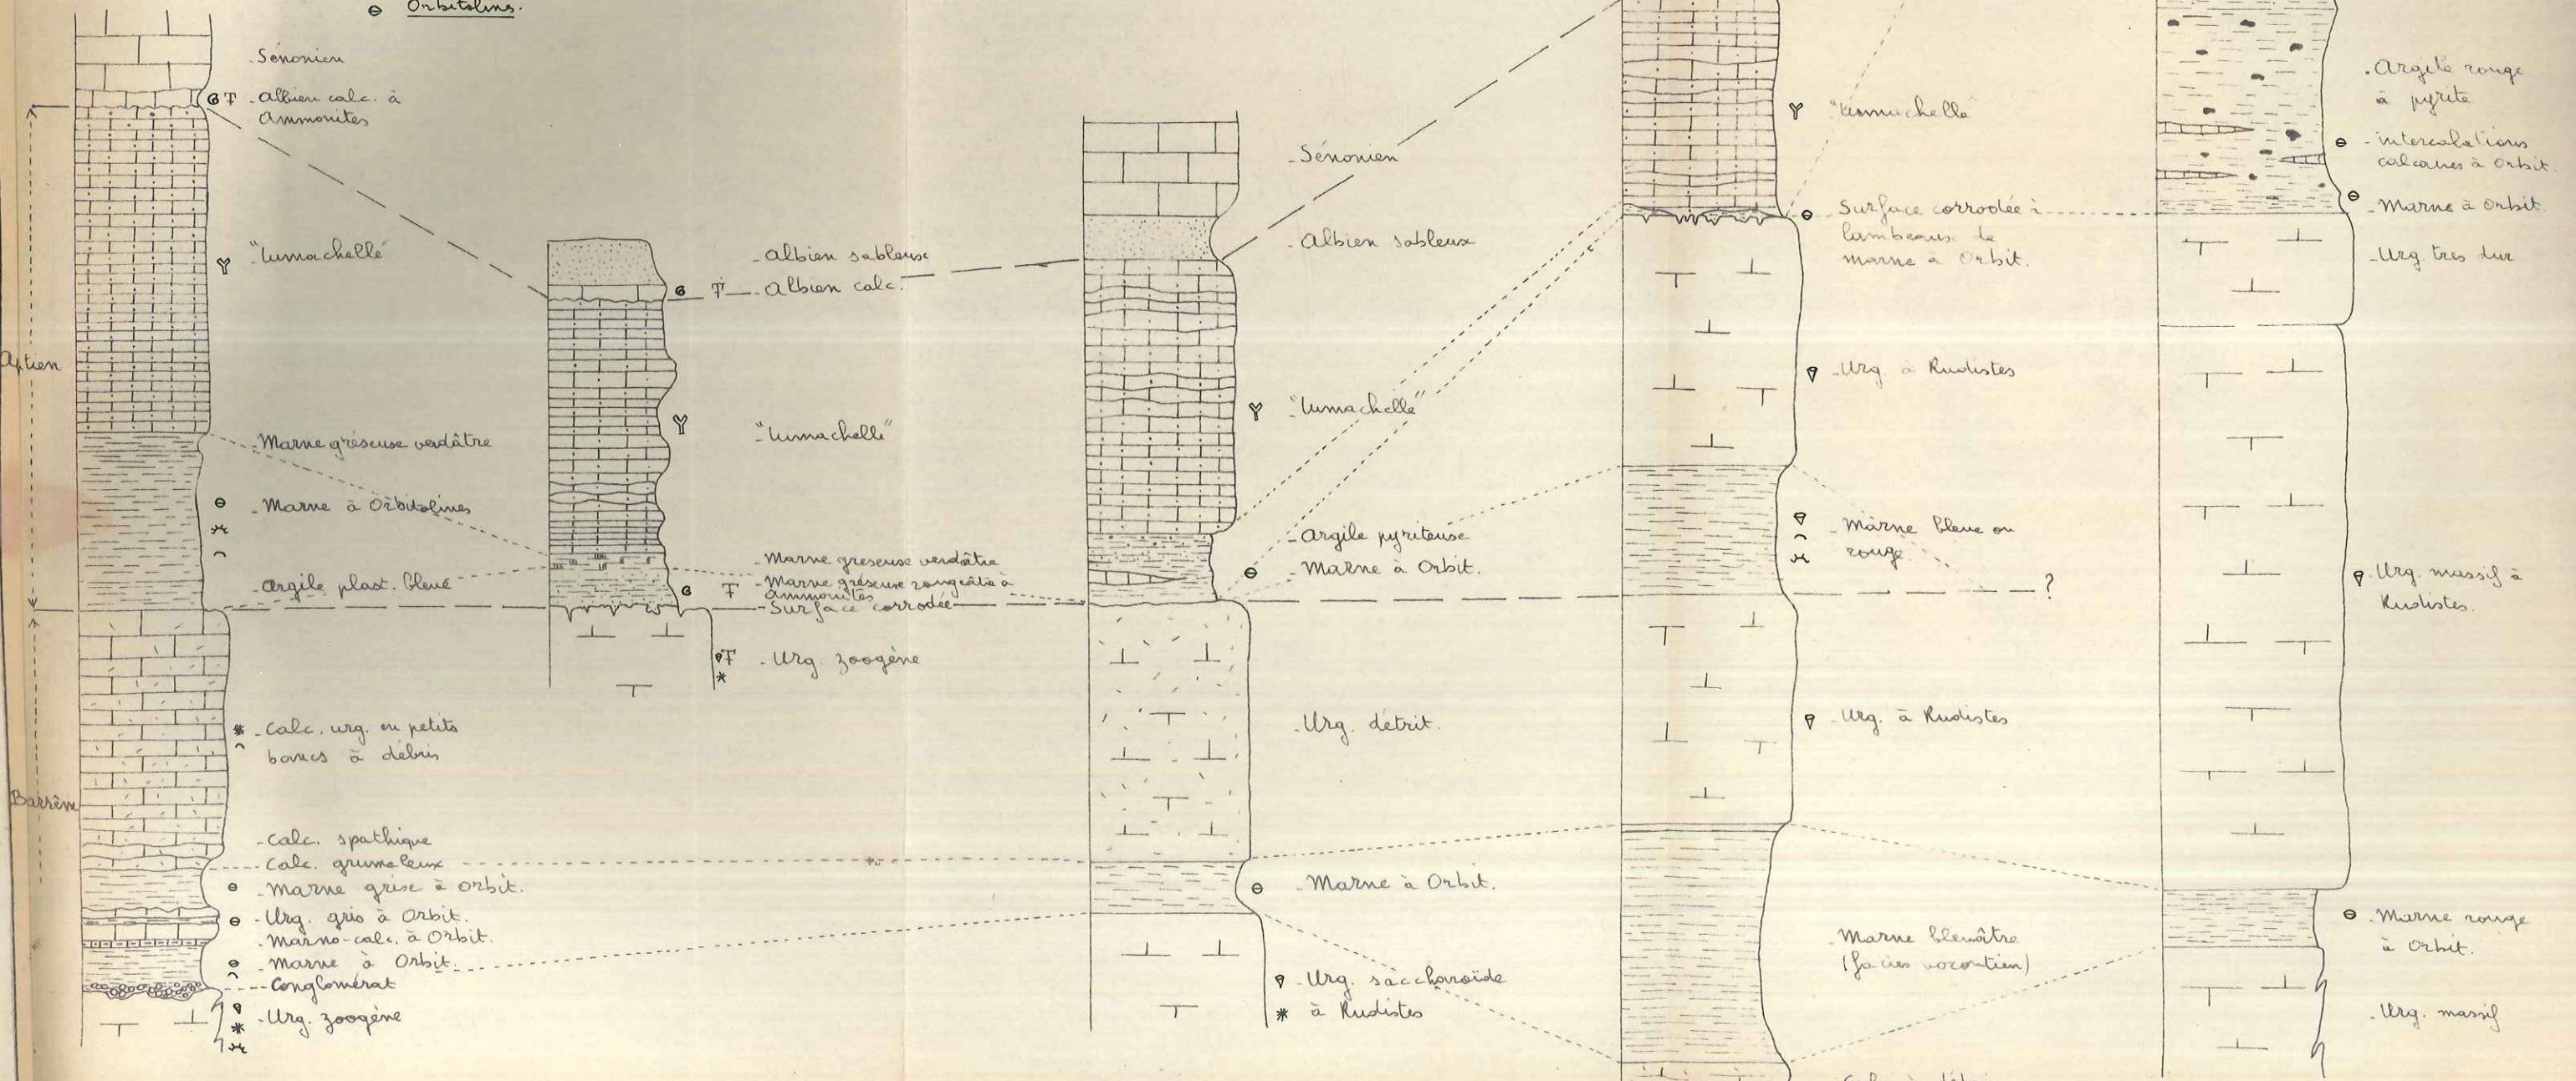 Orbitolins.
Sénonien
Albien calc. à
Ammonites
"Lumachelle"
Aptien
Marne gréseuse verdâtre
Marne à Orbitolines
Argile plast. bleue
Barrêm
Calc. urg. en petits
bancs à débris
Calc. spathique
Calc. grumeleux
Marne grise à Orbit.
Urg. gris à Orbit.
Marno-calc. à Orbit.
Marne à Orbit.
Conglomérat
Urg. zoogène
Albien sableux
Albien calc.
"Lumachelle"
Marne greseuse verdâtre
Marne gréseuse rougeâtre à
Ammonites
Surface corrodée
Urg. zoogène
Sénonien
Albien sableux
"Lumachelle"
Argile pyriteuse
Marne à Orbit.
Urg. détrit.
Marne à Orbit.
Urg. saccharoïde
à Rudistes
"Lumachelle"
Surface corrodée à
lambeaux de
marne à Orbit.
Urg. à Rudistes
Marne bleue ou
rouge
?
Urg. à Rudistes
Marne bleuâtre
(faciès vocontien)
Argile rouge
à pyrite
intercalations
calcaires à Orbit.
Marne à Orbit.
Urg. très dur
Urg. massif à
Rudistes.
Marne rouge
à Orbit.
Urg. massif